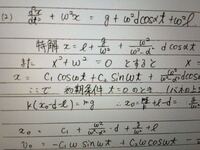 (2) d²x/dt² + ω²x = g + ω²d cosαt + ω²l
特解 x = l + g/ω² + ω²/(ω²-α²) d cosαt
また x² + ω² = 0 とすると x
x = C₁ cosωt + C₂ sinωt + ω²/(ω²-α²) d cosαt
ここで 初期条件 t=0 のとき (バネの上
k(x₀-d-l) = mg ∴ x₀ = + l + d
x₀ = C₁ + ω²/(ω²-α²) d + g/ω² + l
v₀ = -C₁ω sinωt + C₂ω cosωt